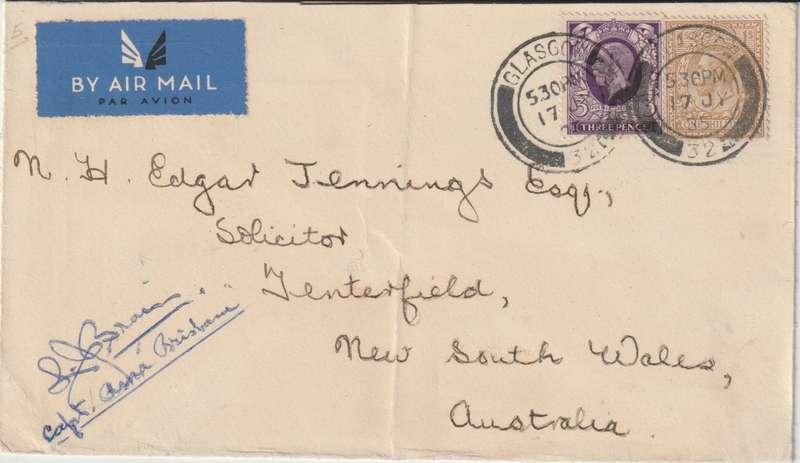 5
BY AIR MAIL
PAR AVION
GLASGOW
5.30PM
17
32
THREE PENCE
3
3
5.30PM
17 JY
32
N. H. Edgar Jennings Esq.,
Solicitor
Tenterfield,
New South Wales,
Australia.
Capt. Brisbane